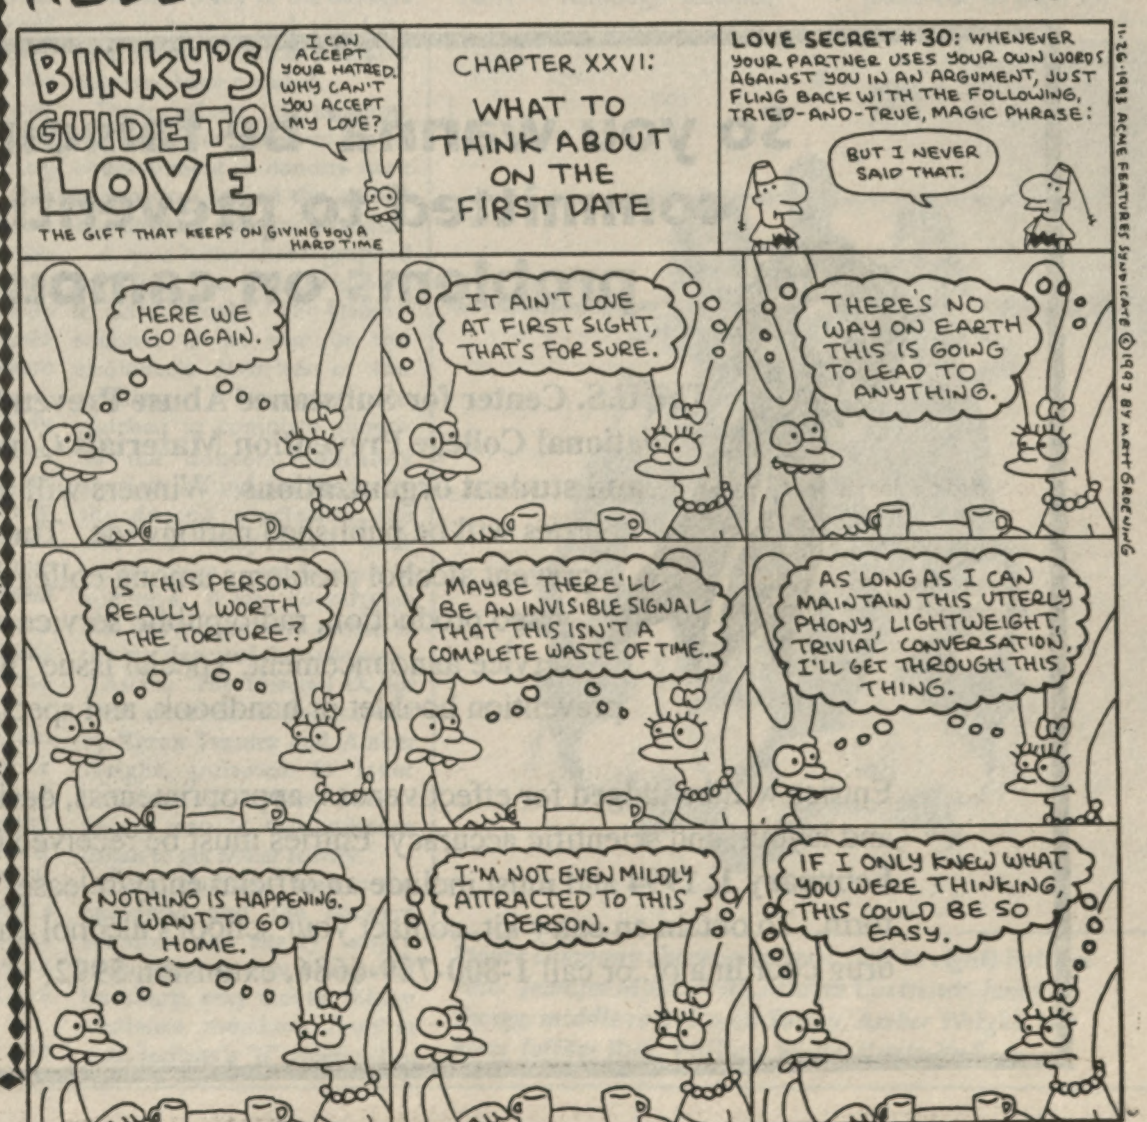 BINKY'S
GUIDE TO
LOVE
THE GIFT THAT KEEPS ON GIVING YOU A
HARD TIME
I CAN
ACCEPT
YOUR HATRED.
WHY CAN'T
YOU ACCEPT
MY LOVE?
CHAPTER XXVI:
WHAT TO
THINK ABOUT
ON THE
FIRST DATE
LOVE SECRET #30: WHENEVER
YOUR PARTNER USES YOUR OWN WORDS
AGAINST YOU IN AN ARGUMENT, JUST
FLING BACK WITH THE FOLLOWING,
TRIED-AND-TRUE, MAGIC PHRASE:
BUT I NEVER
SAID THAT.
11-26-1993 ACME FEATURES SYNDICATE ©1993 BY MATT GROENING
HERE WE
GO AGAIN.
IT AIN'T LOVE
AT FIRST SIGHT,
THAT'S FOR SURE.
THERE'S NO
WAY ON EARTH
THIS IS GOING
TO LEAD TO
ANYTHING.
IS THIS PERSON
REALLY WORTH
THE TORTURE?
MAYBE THERE'LL
BE AN INVISIBLE SIGNAL
THAT THIS ISN'T A
COMPLETE WASTE OF TIME.
AS LONG AS I CAN
MAINTAIN THIS UTTERLY
PHONY, LIGHTWEIGHT,
TRIVIAL CONVERSATION,
I'LL GET THROUGH THIS
THING.
NOTHING IS HAPPENING.
I WANT TO GO
HOME.
I'M NOT EVEN MILDLY
ATTRACTED TO THIS
PERSON.
IF I ONLY KNEW WHAT
YOU WERE THINKING,
THIS COULD BE SO
EASY.